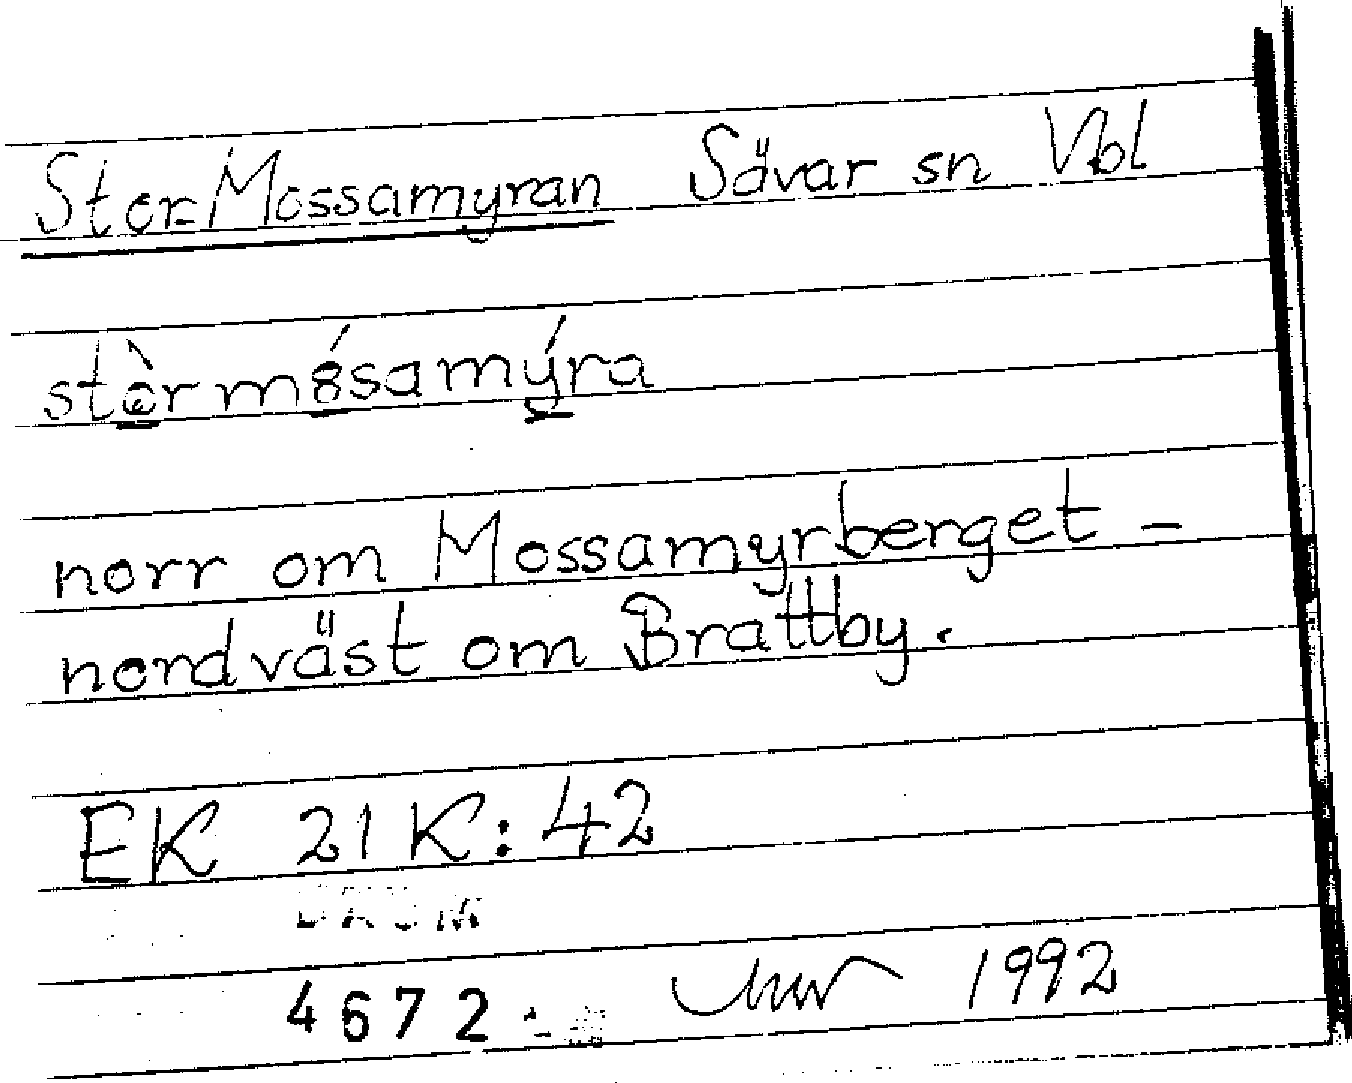 Stor-Mossamyran Sävar sn Vbl
stòrmósamýra
norr om Mossamyrberget -
nordväst om Brattby.
EK 21K:42
DAUM
4672
1992